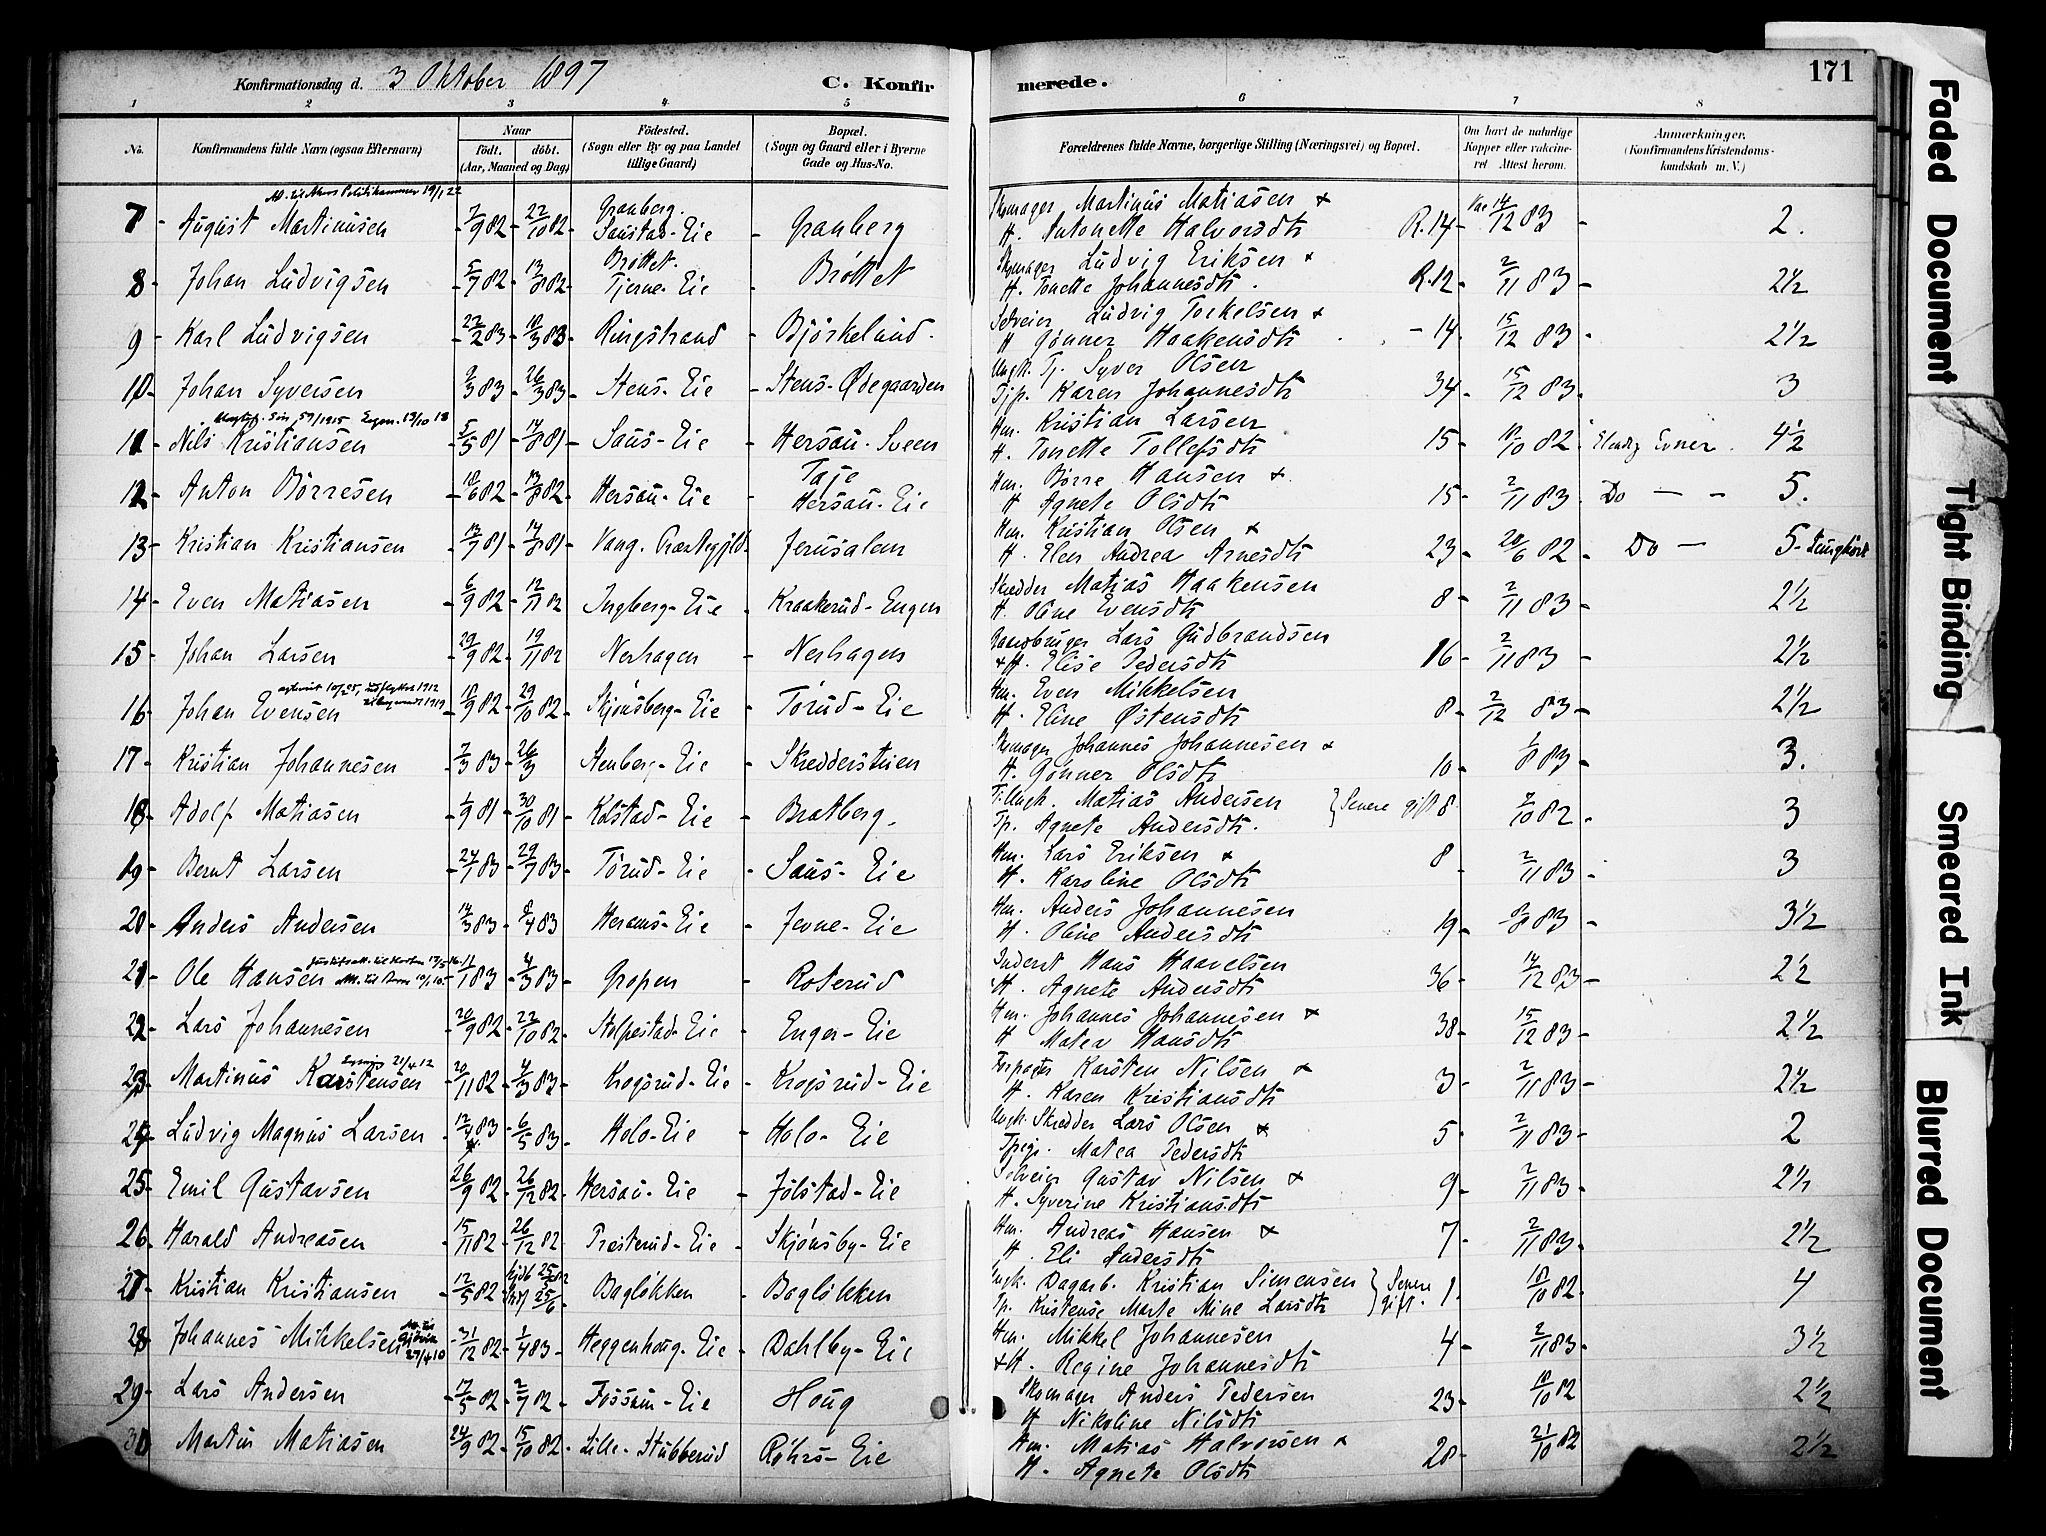 Konfirmationsdag d. 3 Oktober 1897 C. Konfirmerede. 171
1 2 3 4 5 6 7 8
No. Konfirmandens fulde Navn (ogsaa Efternavn) Naar Födt. döbt. (Aar, Maaned og Dag) Födested. (Sogn eller By og paa Landet tillige Gaard) Bopæl. (Sogn og Gaard eller i Byerne Gade og Hus-No. Forældrenes fulde Navne, borgerlige Stilling (Næringsvei) og Bopæl. Om havt de naturlige Kopper eller vakcineret Attest herom. Anmærkninger. (Konfirmandens Kristendomskundskab m. V.)
7 August Martinusen 7/9 82 22/10 82 Granberg. Saustad-Eie Granberg Skomager Martinus Matiasen & H. Antonette Halvorsdtr R. 14 Vac 14/12 83 2.
8 Johan Ludvigsen 5/7 82 13/8 82 Brottet. Tjerne-Eie Bröttet Skomager Ludvig Eriksen & H. Tonette Johannesdtr. R. 12 2/11 83 2½
9 Karl Ludvigsen 22/2 83 18/3 83 Ringstrand Björkelund. Selveier Ludvig Torkelsen & H Gönner Haakensdtr 14 15/12 83 2½
10 Johan Syversen 9/3 83 26/3 83 Stens-Eie Stens-Ødegaarden Ungk. Tj. Syver Olsen Tjp. Karen Johannesdtr 34 15/12 83 3
11 Nils Kristiansen 5/5 81 14/8 81 Saus-Eie Hersau-Sveen Hm. Kristian Larsen H. Tonette Tollefsdtr 15 18/10 82 Elendig Evner 4½
12 Anton Börresen 18/6 82 13/8 82 Hersau-Eie Taje Hersau-Eie Hm. Börre Hansen & H Agnete Olsdtr 15 2/11 83 Do 5.
13 Kristian Kristiansen 13/7 81 14/8 81 Vang Præstegjld Jerusalem Hm. Kristian Olsen & H. Elen Andrea Arnesdtr 23 20/6 82 Do 5- Tunghört
14 Even Matiasen 6/9 82 12/11 82 Ingberg-Eie Kraakerud-Engen Skrædder Matias Haakensen H. Oline Evensdtr 8 2/11 83 2½
15 Johan Larsen 29/9 82 19/11 82 Nerhagen Nerhagen Gaardbruger Lars Gudbrandsen & H. Elise Pedersdtr 16 2/11 83 2½
16 Johan Evensen 18/9 82 29/10 82 Skjönsberg-Eie Torud-Eie Hm. Even Mikkelsen H. Eline Østensdtr 8 2/12 83 2½
17 Kristian Johannesen 7/3 83 26/3 Stenberg-Eie Skredderstuen Skomager Johannes Johannesen & H. Gönner Olsdtr 10 1/8 83 3.
18 Adolf Matiasen 1/9 81 30/10 81 Kolstad-Eie Bratberg Ungk. Matias Andersen Tp. Agnete Andersdtr. } Senere gift 8 2/10 82 3
19 Bernt Larsen 24/7 83 29/7 83 Torud-Eie Saus-Eie Hm. Lars Eriksen & H. Karoline Olsdtr 8 2/11 83 3
20 Anders Andersen 14/3 83 8/4 83 Herams-Eie Jevne-Eie Hm. Anders Johannesen H. Oline Andersdtr 19 8/8 83 3½
21 Ole Hansen 11/1 83 4/3 83 Gropen Roterud Inderst Hans Haavelsen & H. Agnete Andersdtr 36 14/12 83 2½
22 Lars Johannesen 20/9 82 22/10 82 Stolpestad-Eie Enger-Eie Hm. Johannes Johannesen & H Mater Hansdtr 38 15/12 83 2½
23 Martinus Karstensen 20/11 82 4/3 83 Krogsrud-Eie Krogsrud-Eie Forpagter Karsten Nilsen & H. Karen Kristiansdtr 3 2/11 83 2½
24 Ludvig Magnus Larsen 12/4 83 6/5 83 Holo-Eie Holo-Eie Ungk. Skredder Lars Olsen & Tpige Matea Pedersdtr 5 2/11 83 2
25 Emil Gustavsen 26/9 82 26/12 82 Hersau-Eie Jölstad-Eie Selveier Gustav Nilsen & H. Syverine Kristiansdtr 9 2/11 83 2½
26 Harald Andreasen 15/11 82 26/12 82 Presterud-Eie Skjönsby-Eie Hm. Andreas Hansen & H. Eli Andersdtr 7 2/11 83 2½
27 Kristian Kristiansen 12/5 82 25/6 Baglökken Baglökken Ungk. Dagarb. Kristian Simensen Tp. Kristense Marte Mine Larsdtr } Senere gift. 1 18/10 82 4
28 Johannes Mikkelsen 31/12 82 1/4 83 Heggenhoug-Eie Dahlby-Eie Hm. Mikkel Johannesen & H. Regine Johannesdtr 4 2/11 83 3½
29 Lars Andersen 17/5 82 2/7 82 Fossum-Eie Houg Skomager Anders Pedersen H Nikoline Nilsdtr 23 18/10 82 2½
30 Martin Matiasen 24/9 82 15/10 82 Lille-Stubberud Röhrs-Eie Hm. Matias Halvorsen & H. Agnete Olsdtr 28 21/10 82 2½
Faded Document
Tight Binding
Smeared Ink
Blurred Document